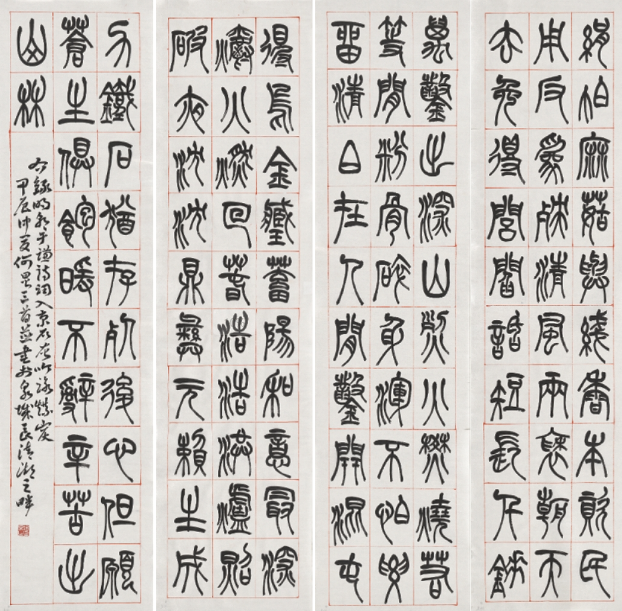 絹帕麻菇與綫香本資民
用反為殃清風兩袖朝天
去免得閭閻話短長千錘
萬鑿出深山烈火焚燒若
等閒粉骨碎身渾不怕要
留清白在人間鑿開混沌
得烏金藏蓄陽和意最深
爝火燃回春浩浩洪爐照
破夜沈沈鼎彝元賴生成
力鐵石猶存死後心但願
蒼生俱飽暖不辭辛苦出
山林
右錄明于謙詩詞入京石灰吟詠煤炭
甲辰仲夏何三首並書於泉城長清湖之畔